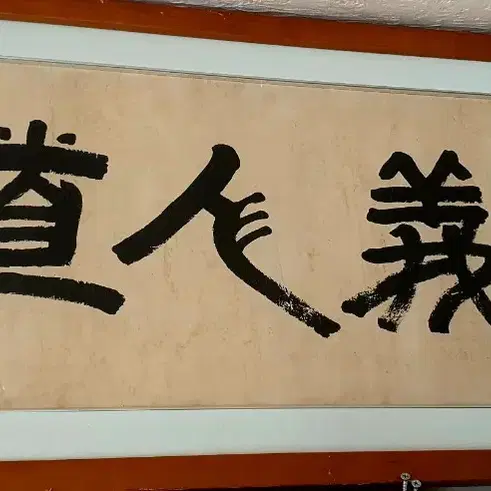 義人道